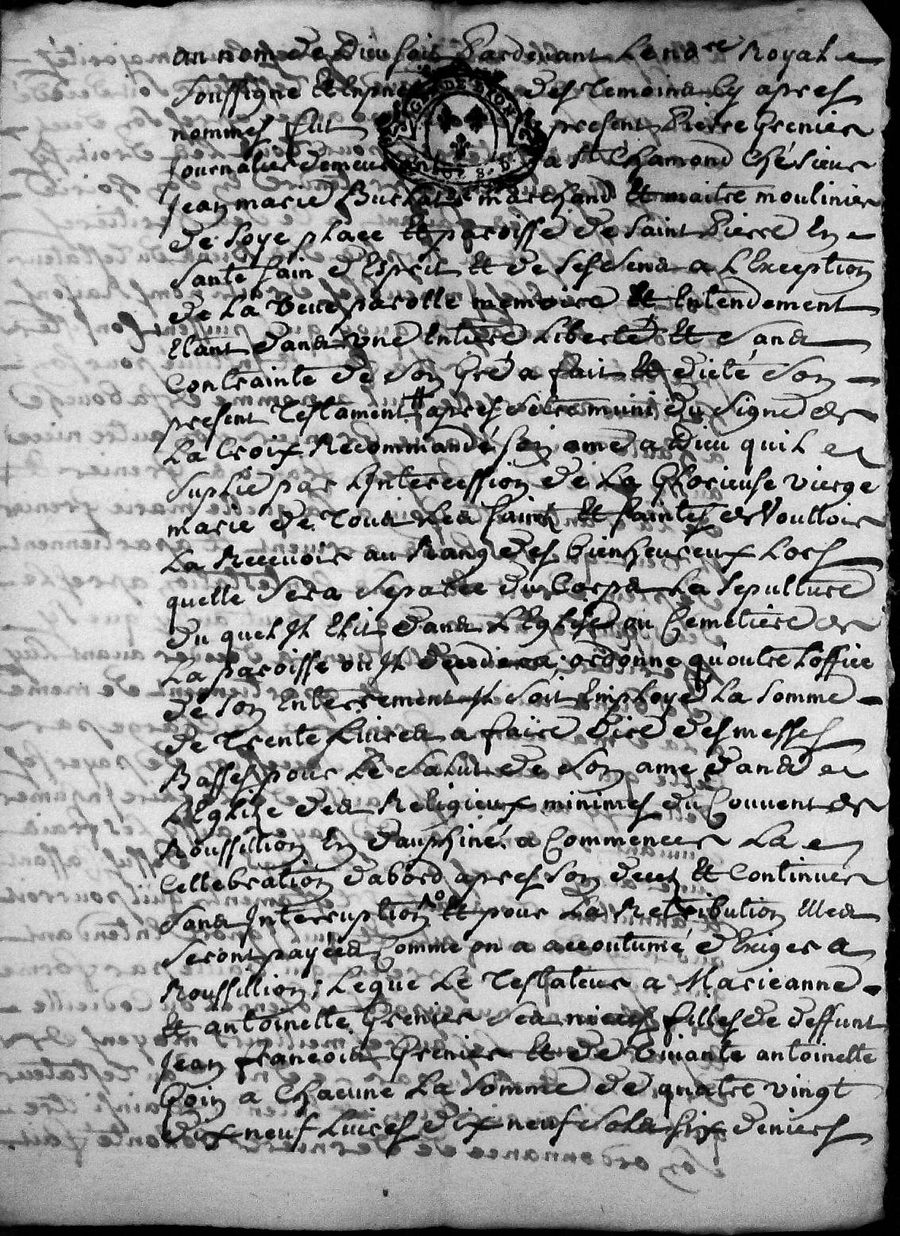 au nom de Dieu soit Pardevant Le no.re Royal
soussigné Et En pnce des Temoins Cy apres
nommés fut present Pierre Grenier
journalier demeurant a St Chamond Ché Sieur
Jean marie marchand Et maitre moulinier
de soye place Et paroisse de Saint Pierre En
Santé sain d'Esprit Et de ses Sens a L'Exception
de La Veue parolle memoire Et Entendement
Etant dans une Entiere Liberté Et Sans
Contrainte de Son Gré a fait Et dicté Son
present Testament apres s'etre muni du Signe de
La Croix Recommandé Son ame a Dieu qu'il
Suplie par Intercession de La Glorieuse vierge
marie de Tous Les Saints Et Saintes de Voulloir
La Recevoir au Rang des bienheureux Lors
quelle Sera Separée du Corps La Sepulture
du quel Il Elit dans L'Eglise ou Cemetiere de
La paroisse ou Il decedera, ordonne qu'outre L'office
de Son Enterrement Il Soit Employé La Somme
de Trente Livres a faire dire des messes
Basses pour Le Salut de Son ame dans
L'Eglise des Religieux minimes du Couvent de
Roussillion En dauphiné a Commencer La
Cellebration d'abord apres Son deces Et Continuer
Sans Interruption Et pour La Retribution Elles
Seront payées Comme on a accoutumé d'Exiger a
Roussillion; Legue Le Testateur a Marieanne
Et antoinette Grenier Ses nieces filles de deffunt
Jean François Grenier Et de Vivante antoinette
Goin a Chacune La Somme de quatre vingt
dix neuf Livres dix neuf Sols Six deniers